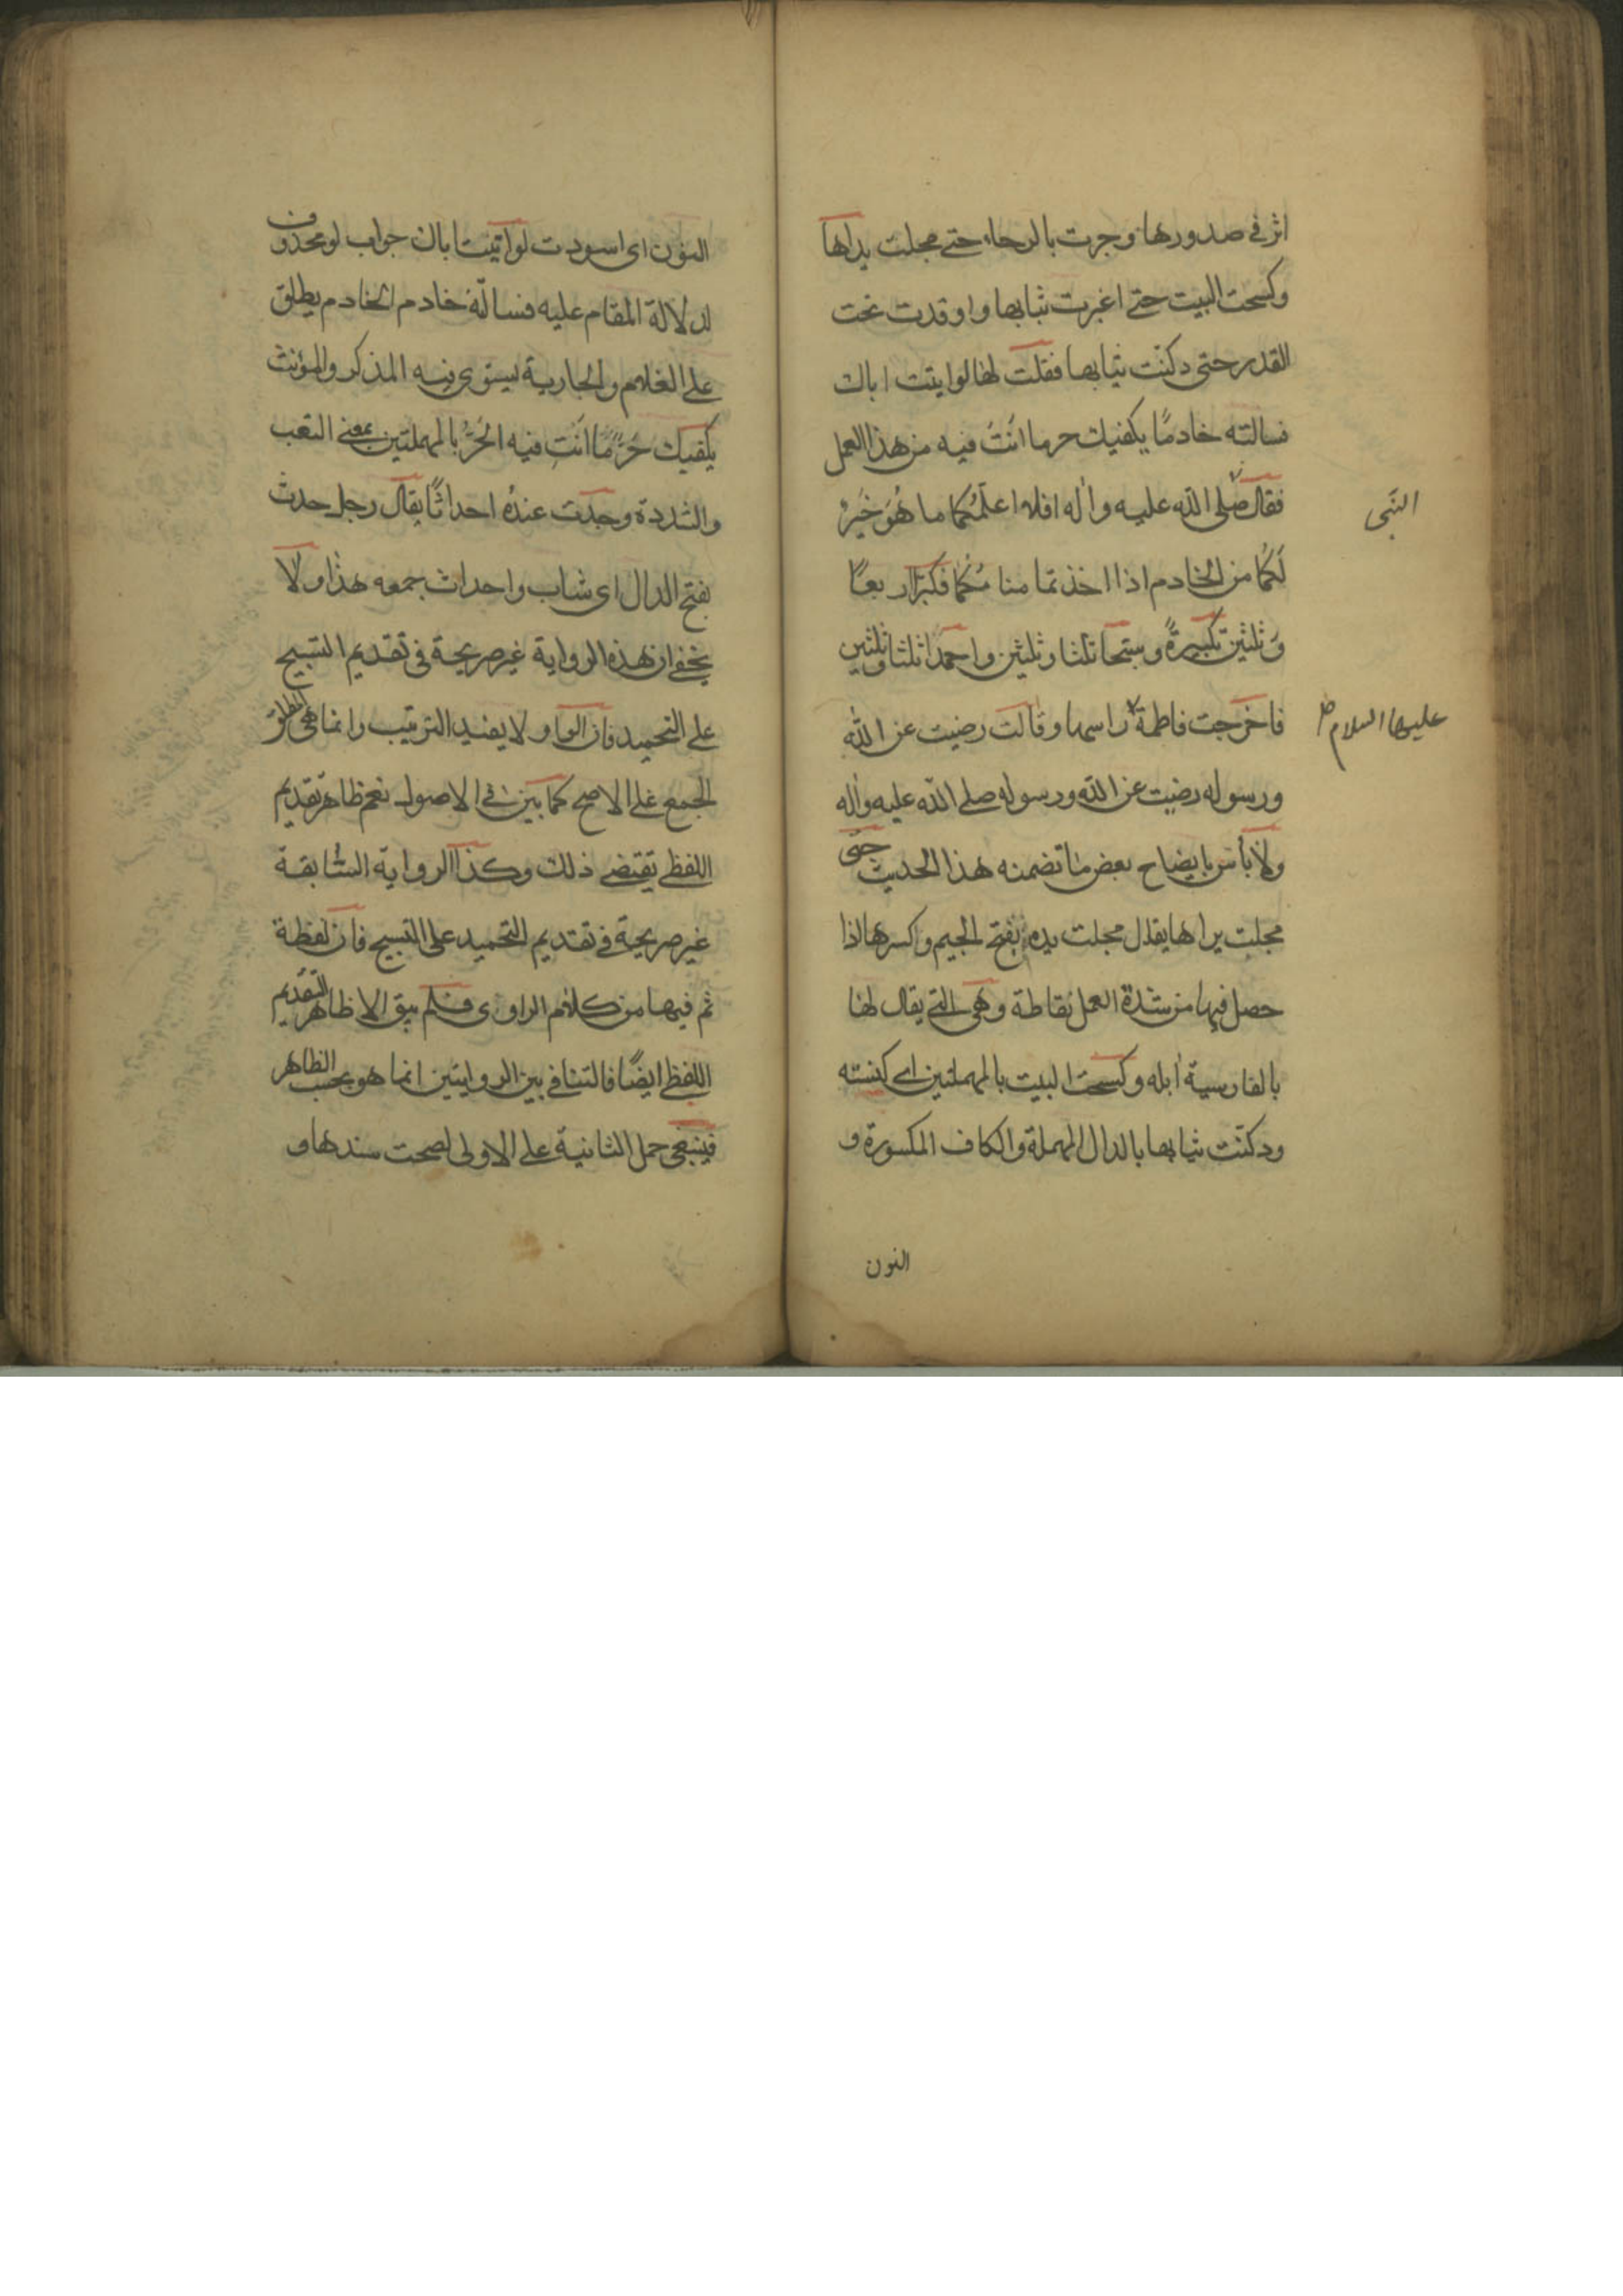 اثر في صدورها وجرت بالرحاء حتى مجلت يداها
وكسحت البيت حتى اغبرت ثيابها واوقدت تحت
القدر حتى دكنت ثيابها فقلت لها لو اتيت اباك
فسالته خادمًا يكفيك حر ما انت فيه من هذا العمل
فقال صلى الله عليه واله افلا اعلمكما ما هو خير
النبي
لكما من الخادم اذا اخذتما منامكما فكبرا اربعًا
وثلثين تكبيرةً وسبحا ثلثا وثلثين واحمدا ثلثا وثلثين
فاخرجت فاطمة راسها وقالت رضيت عن الله
عليها السلام
ورسوله رضيت عن الله ورسوله صلى الله عليه واله
ولا باس بايضاح بعض ما تضمنه هذا الحديث حتى
مجلت يداها يقال مجلت يده بفتح الجيم وكسرها اذا
حصل فيها من شدة العمل نفاطة وهي التي يقال لها
بالفارسية ابله وكسحت البيت بالمهملتين اي كنسته
ودكنت ثيابها بالدال المهملة والكاف المكسورة و
النون
النون اى اسودت لو اتيت اباك جواب لو محذوف
لدلالة المقام عليه فسالته خادم الخادم يطلق
على الغلام والجارية يستوى فيه المذكر والمؤنث
يكفيك حر ما انت فيه الحر بالمهملتين بمعنى التعب
والشدة وجدت عنده احداثًا يقال رجل حدث
بفتح الدال اى شاب واحداث جمعه هذا ولا
يخفى ان هذه الرواية غير صريحة في تقديم التسبيح
على التحميد فان الواو لا يفيد الترتيب وانما هي لمطلق
الجمع على الاصح كما بين في الاصول نعم ظاهر تقديم
اللفظ يقتضي ذلك وكذا الرواية السابقة
غير صريحة في تقديم التحميد على التسبيح فان لفظة
ثم فيها من كلام الراوى فلم يبق الا ظاهر التقديم
اللفظ ايضًا فالتنافي بين الروايتين انما هو بحسب الظاهر
فينبغي حمل الثانية على الاولى لصحت سندها و